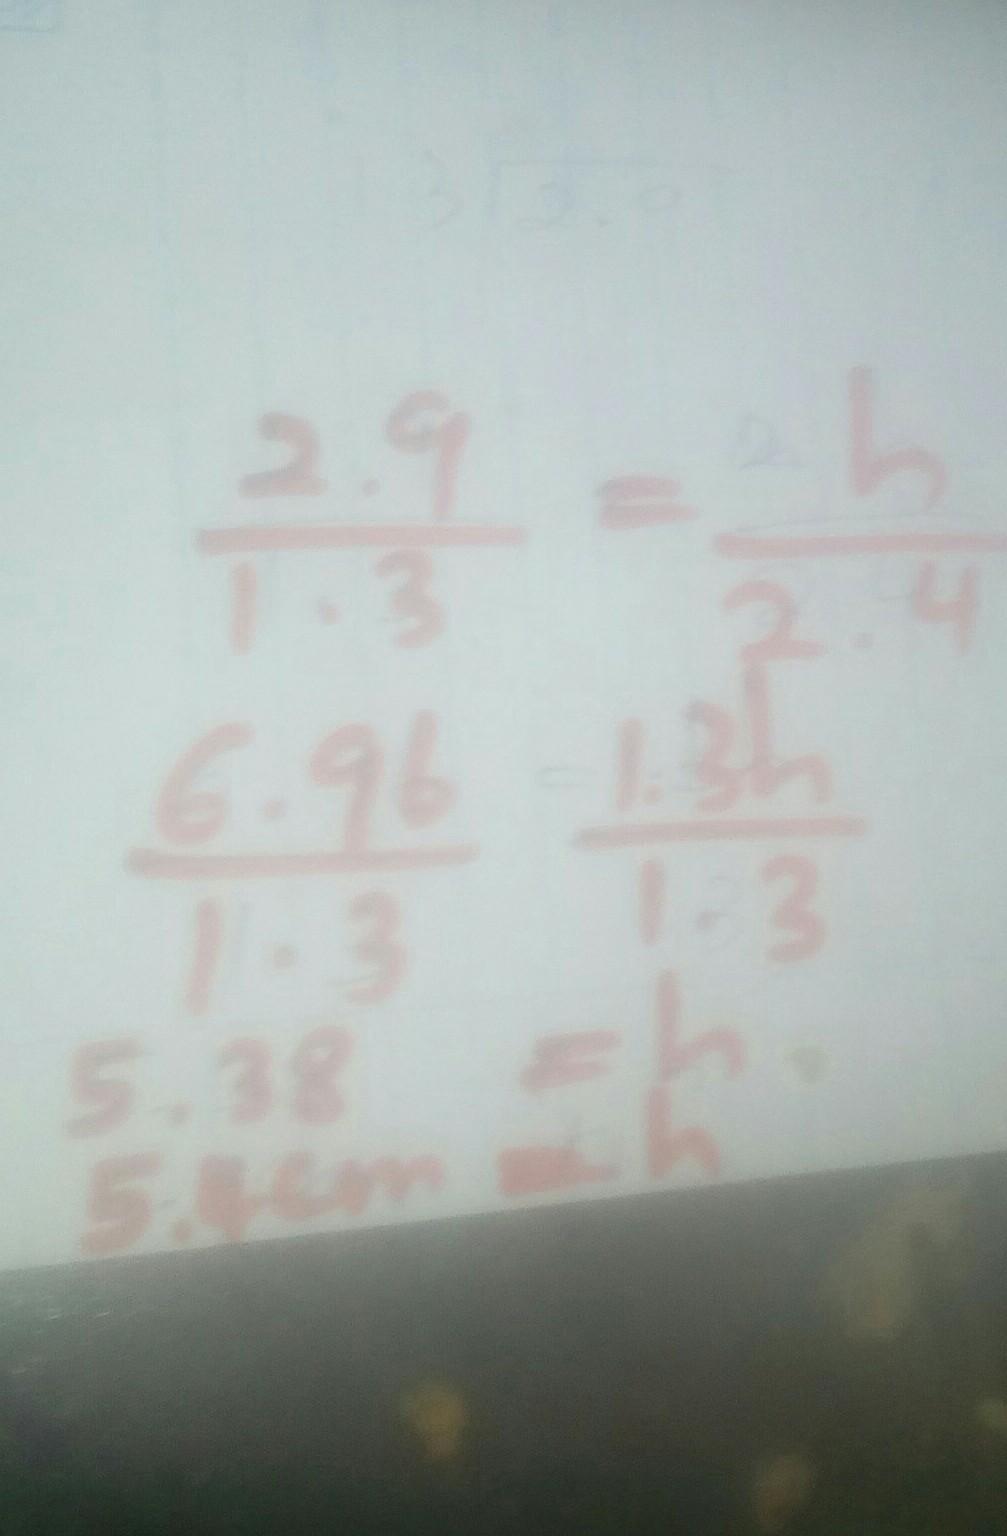 2.9 = h
1.3 2.4
6.96 = 1.3h
1.3 1.3
5.38 = h
5.4cm = h